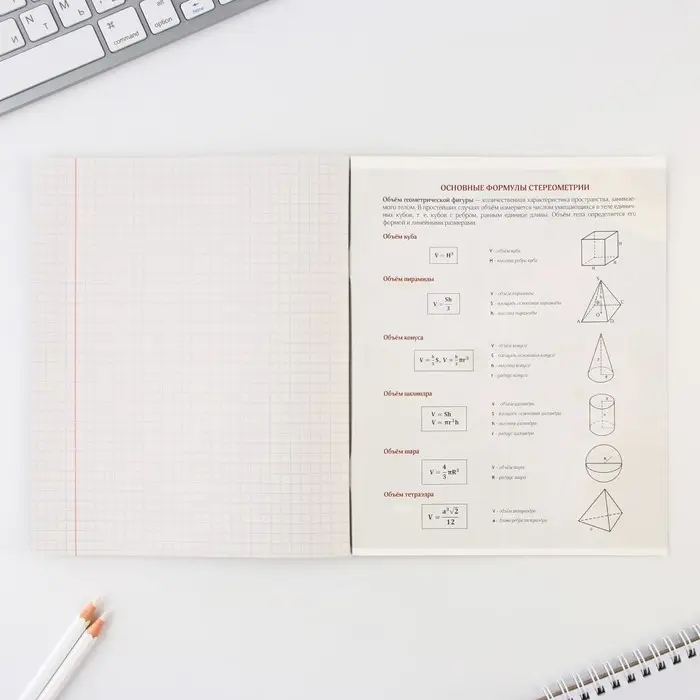 И N Т М Ь
⌘ command
alt option
ОСНОВНЫЕ ФОРМУЛЫ СТЕРЕОМЕТРИИ
Объём геометрической фигуры — количественная характеристика пространства, занимае-
мого телом. В простейших случаях объём измеряется числом умещающихся в теле единич-
ных кубов, т. е. кубов с ребром, равным единице длины. Объём тела определяется его
формой и линейными размерами.
Объём куба
V = H³
V - объём куба
H - высота ребра куба
H
H
Объём пирамиды
V = Sh/3
V - объём пирамиды
S - площадь основания пирамиды
h - высота пирамиды
S
A
B
C
D
O
Объём конуса
V = h/3 S, V = h/3 πr²
V - объём конуса
S - площадь основания конуса
h - высота конуса
r - радиус конуса
Объём цилиндра
V = Sh
V = πr²h
V - объём цилиндра
S - площадь основания цилиндра
h - высота цилиндра
r - радиус цилиндра
Объём шара
V = 4/3 πR³
V - объём шара
R - радиус шара
R
Объём тетраэдра
V = a³√2/12
V - объём тетраэдра
a - длина ребра тетраэдра
a